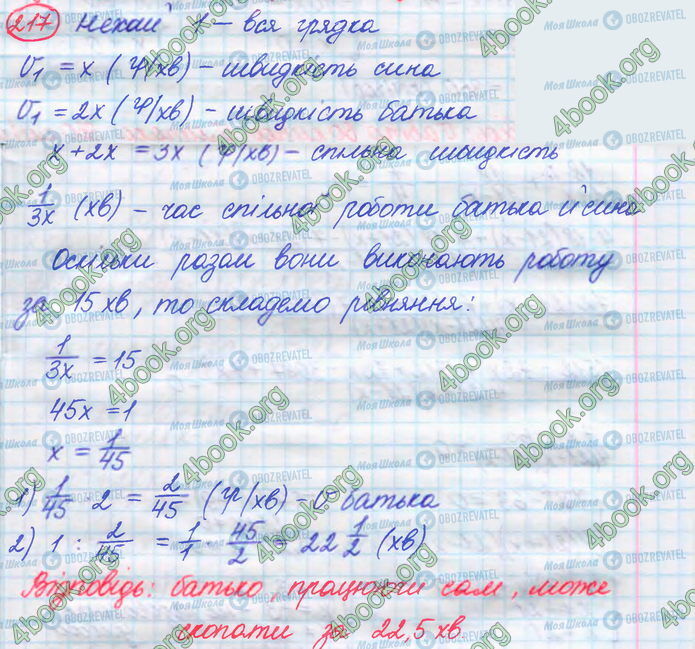 217 Нехай x – вся грядка
υ₁ = x (гр/хв) – швидкість сина
υ₁ = 2x (гр/хв) – швидкість батька
x + 2x = 3x (гр/хв) – спільна швидкість
1/3x (хв) – час спільної роботи батька й сина
Оскільки разом вони виконають роботу
за 15 хв, то складемо рівняння:
1/3x = 15
45x = 1
x = 1/45
1) 1/45 · 2 = 2/45 (гр/хв) – υ батька
2) 1 : 2/45 = 1/1 · 45/2 = 22 1/2 (хв)
Відповідь: батько, працюючи сам, може
скопати за 22,5 хв.